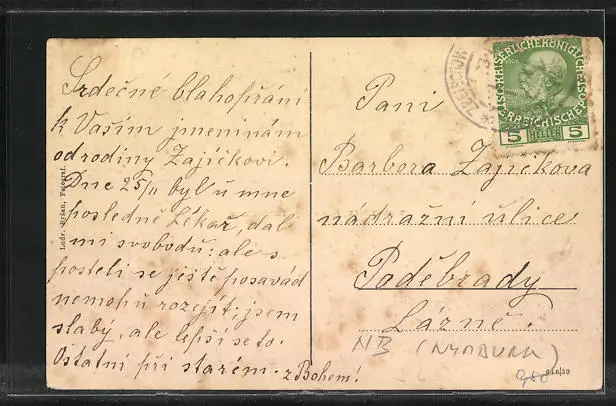 Srdečné blahopřání
k Vašim jmeninám
od rodiny Zajíčkovi.
Dne 25/11 byl u mne
posledně Lékař, dal
mi svobodu: ale s
posteli se ještě posavád
nemohu rozejít; jsem
slabý, ale lepší se to.
Ostatní při starém. z Bohem!
Paní
Barbora Zajíčkova
nádražní úlice
Poděbrady
Lázně.
NB (NYMBURK)
KAISERLICHE KÖNIGLICHE
ÖSTERREICHISCHE POST
1908
5 HELLER 5